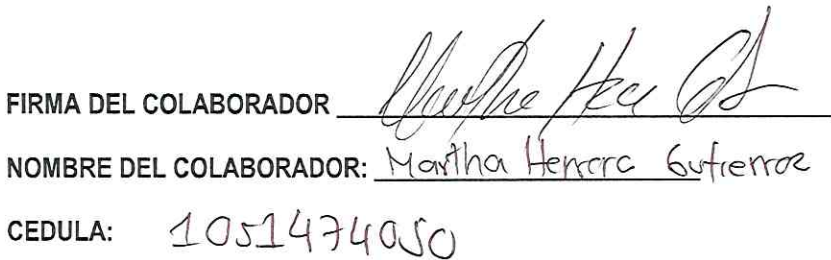 FIRMA DEL COLABORADOR Martha Her G
NOMBRE DEL COLABORADOR: Martha Herrera Gutierrez
CEDULA: 1051474050